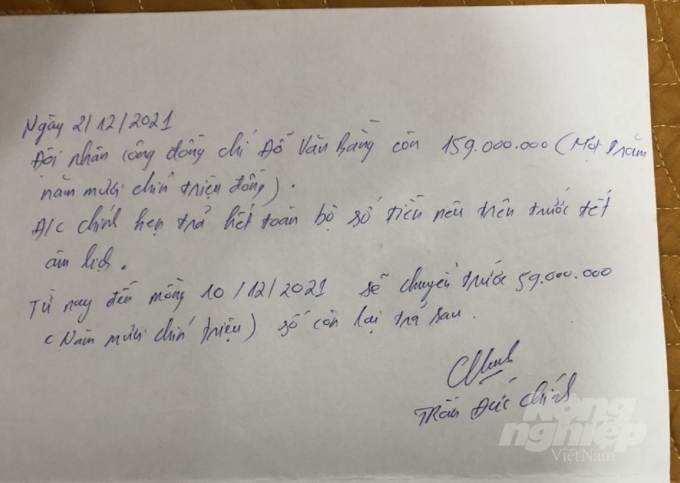 Ngày 2/12/2021
Đội nhân công đồng chí Đỗ Văn Bằng còn 159.000.000 (Một trăm
năm mươi chín triệu đồng).
Đ/c chính hẹn trả hết toàn bộ số tiền nêu trên trước tết
âm lịch.
Từ nay đến mồng 10/12/2021 sẽ chuyển trước 59.000.000
(Năm mươi chín triệu) số còn lại trả sau.
Trần Đức Chính
Nông
nghiệp
Việt Nam